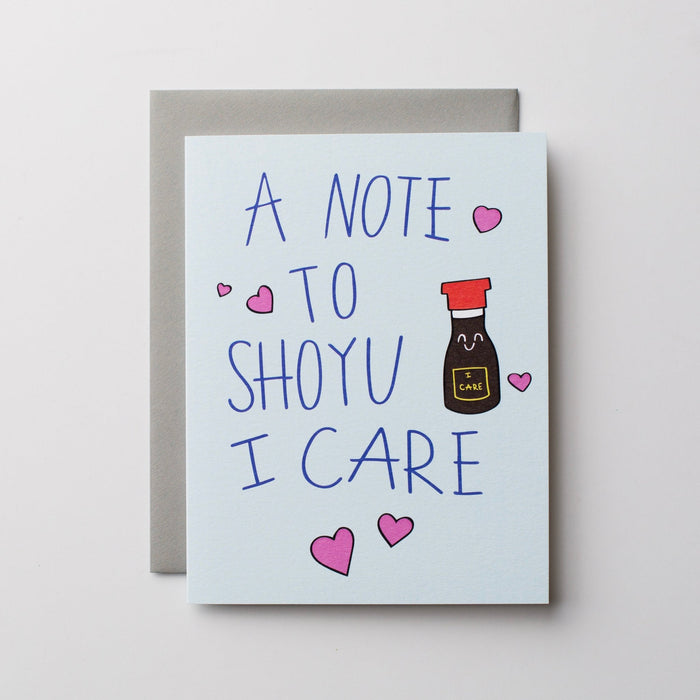 A NOTE
TO
SHOYU
I CARE
I
CARE